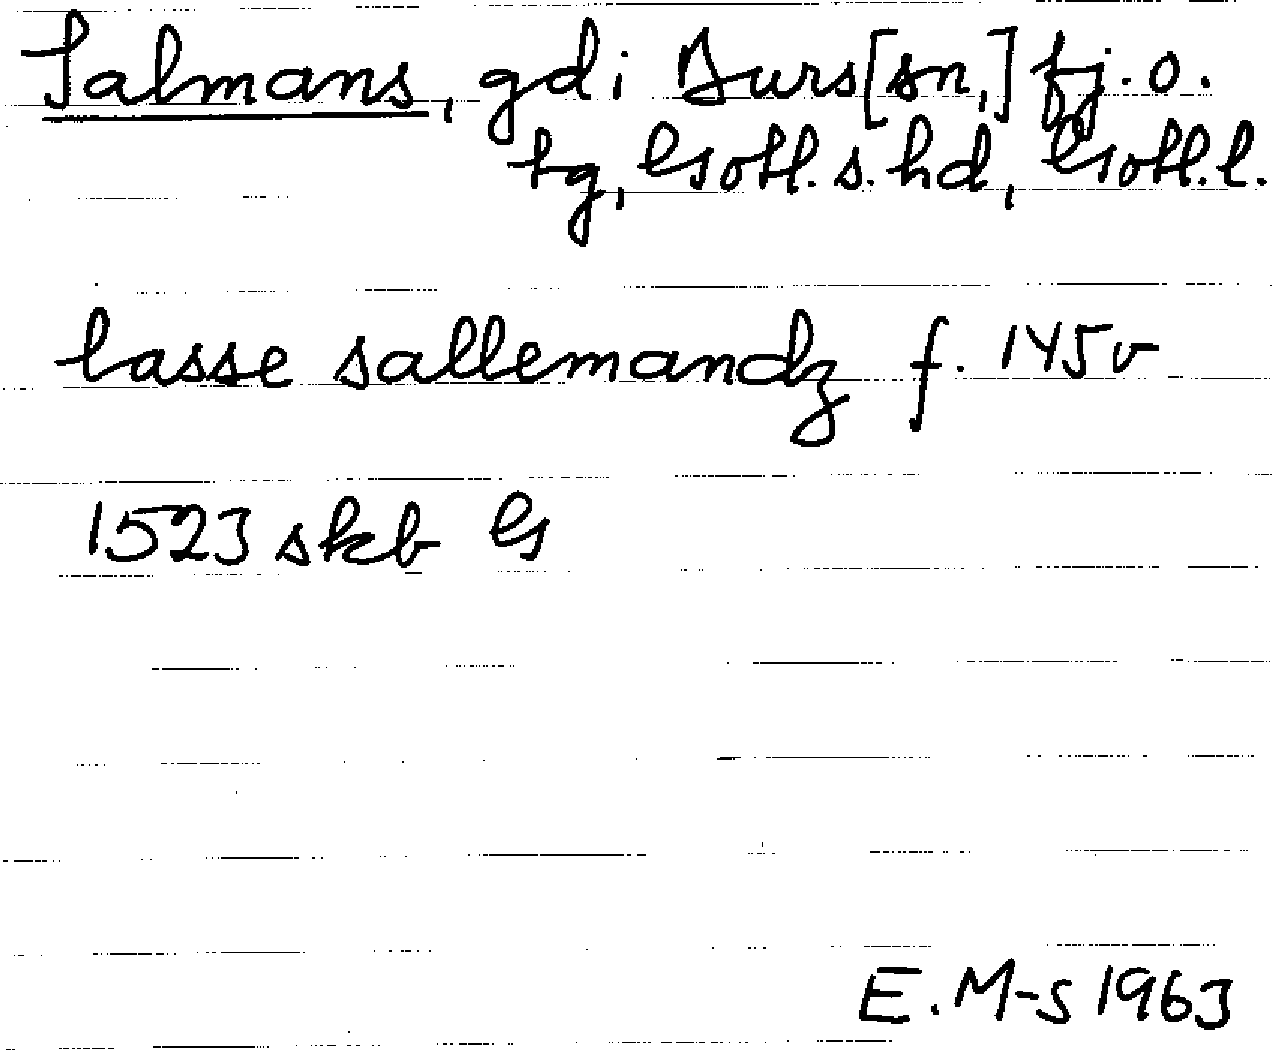 Salmans, gd i Burs [sn,] fj. o.
tg, Gotl. s. hd, Gotl. l.
lasse sallemandz f. 145v
1523 skb G
E. M-s 1963